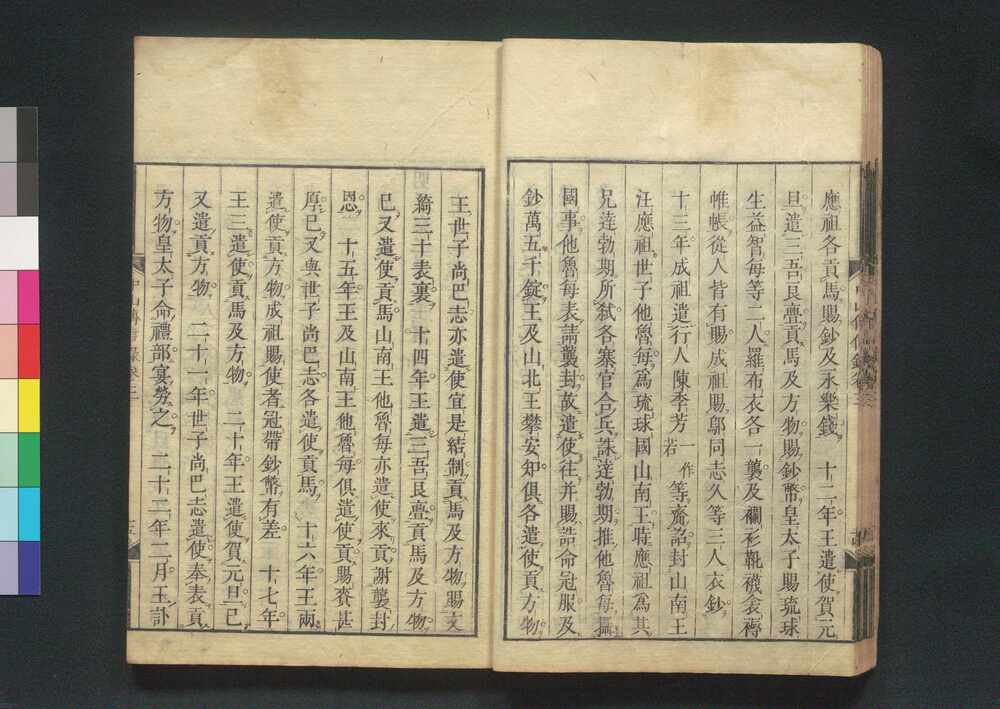 應祖各貢馬賜鈔及永樂錢 十二年王遣使賀元
旦遣三吾良亹貢馬及方物賜鈔幣皇太子賜琉球
生益智每等二人羅布衣各一襲及襴衫靴襪衾褥
帷帳從人皆有賜成祖賜鄔同志久等三人衣鈔
十三年成祖遣行人陳季芳一作若等齎詔封山南王
汪應祖世子他魯每爲琉球國山南王時應祖爲其
兄達勃期所弑各寨官合兵誅達勃期推他魯每攝
國事他魯每表請襲封故遣使往并賜誥命冠服及
鈔萬五千錠王及山北王攀安知俱各遣使貢方物
王世子尚巴志亦遣使宜是結制貢馬及方物賜文
綺三十表裏 十四年王遣三吾良亹貢馬及方物
巳又遣使貢馬山南王他魯每亦遣使來貢謝襲封
恩 十五年王及山南王他魯每俱遣使貢賜賚甚
厚巳又與世子尚巴志各遣使貢馬 十六年王兩
遣使貢方物成祖賜使者冠帶鈔幣有差 十七年
王三遣使貢馬及方物 二十年王遣使賀元旦巳
又遣貢方物 二十一年世子尚巴志遣使奉表貢
方物皇太子命禮部宴勞之 二十二年二月王訃